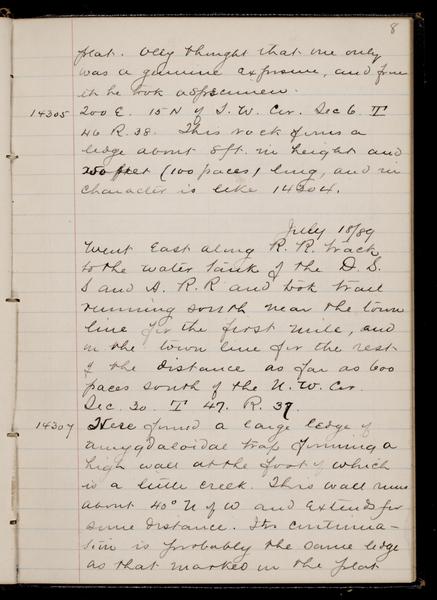 8
plat. Oley thought that one only
was a genuine exposure, and from
it he took a specimen.
14305 200 E. 15 N of S. W. Cor. Sec 6 T
46 R. 38. This rock forms a
ledge about 8 ft. in height and
250 feet (100 paces) long, and in
character is like 14304.
July 18/89
Went East along R. R. track
to the water tank of the D. S.
S and A. R. R and took trail
running south near the town
line for the first mile, and
on the town line for the rest
of the distance as far as 600
paces south of the N. W. Cor.
Sec. 30. T 47. R. 37.
14307 Here found a large ledge of
amygdaloidal trap forming a
high wall at the foot of which
is a little creek. This wall runs
about 40° N of W and Extends for
some distance. Its continua-
tion is probably the same ledge
as that marked on the plat